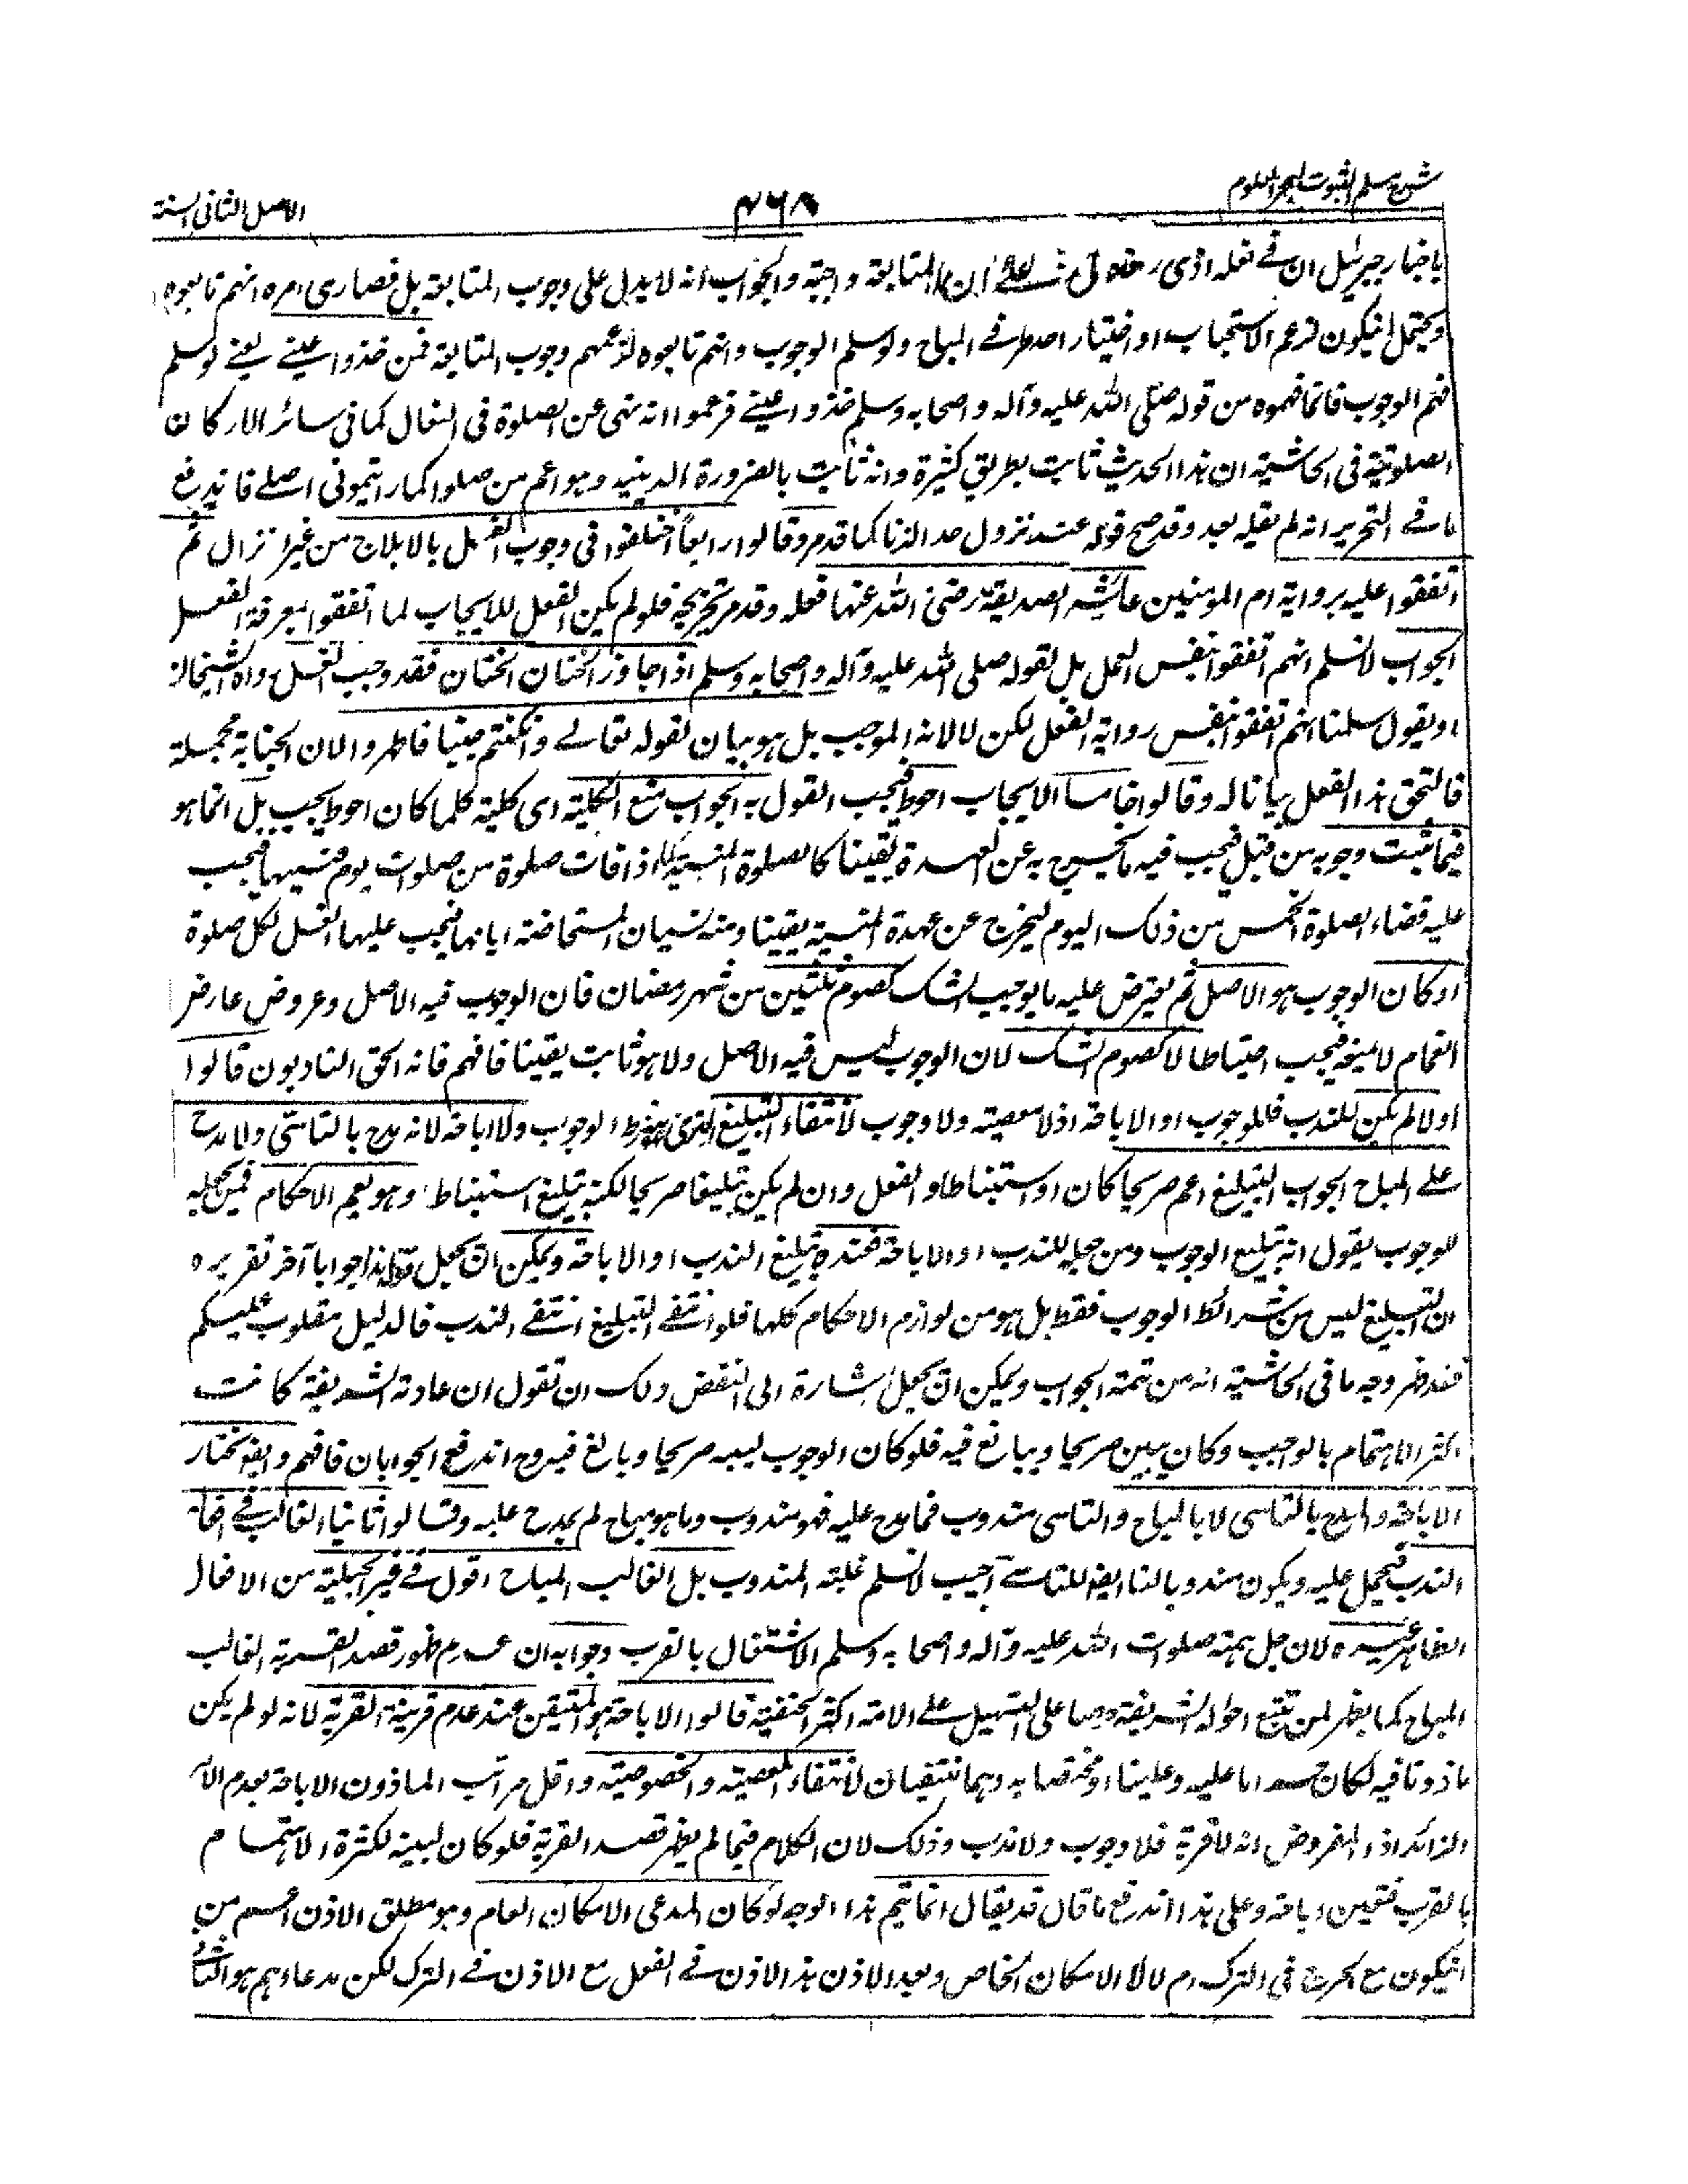 شرح مسلم الثبوت لبحر العلوم
۴۶۸
الاصل الثانی السنة
باخبار جبرئيل ان فے نعله اذی المتابعة واجبة والجواب انه لا يدل على وجوب المتابعة بل قصاری امره انهم تابعوه
ويحتمل انيكون لزعم الاستحباب او اختيار احد طرفے المباح ولو سلم الوجوب وانهم تابعوه لزعمهم وجوب المتابعة فمن خذوا عنے يعنے لو سلم
فهم الوجوب فانما فهموه من قوله صلى الله عليه وآله واصحابه وسلم خذوا عنے فزعموا انه نهى عن الصلوة فى النعال كما فى سائر الاركان
الصلوتية فى الحاشية ان هذا الحديث ثابت بطريق كثيرة وانه ثابت بالضرورة الدينية وهو اعم من صلوا كما رايتمونى اصلے فاندفع
ما فے التحرير انه لم يقله بعد وقد صح قوله عند نزول حد الزنا كما قد مر وقالوا رابعاً اختلفوا فى وجوب الغسل بالايلاج من غير انزال ثم
اتفقوا عليه برواية ام المومنين عائشه الصديقة رضى الله عنها فعله وقد مر تخريجه فلو لم يكن الفعل للايجاب لما اتفقوا بمعرفة الفعل
الجواب لا نسلم انهم اتفقوا بنفس العمل بل لقوله صلى الله عليه وآله واصحابه وسلم اذا جاوز الختان الختان فقد وجب الغسل رواه الشيخان
او يقول سلمنا انهم اتفقوا بنفس رواية الفعل لكن لا لانه الموجب بل هو بيان لقوله تعالے وانكنتم جنبا فاطهروا لان الجنابة مجملة
فالتحق هذا الفعل بيانا له وقالوا خامسا الايجاب احوط فيجب القول به الجواب منع الكلية اى كلية كلما كان احوط يجب بل انما هو
فيما ثبت وجوبه من قبل فيجب فيه ما يخرج به عن العهدة يقينا كالصلوة المنسية اذا فات صلوة من صلوات يوم فنسيها فيجب
عليه قضاء الصلوة الخمس من ذلك اليوم ليخرج عن عهدة المنسية يقينا ومنه نسيان المستحاضة ايامها فيجب عليها الغسل لكل صلوة
او كان الوجوب هو الاصل ثم يعترض عليه ما يوجب الشك كصوم ثلثين من شهر رمضان فان الوجوب فيه الاصل وعروض عارض
الغمام لا يمنعه فيجب احتياطا لا كصوم الشك لان الوجوب ليس فيه الاصل ولا هو ثابت يقينا فافهم فانه الحق النادبون قالوا
اولا لم يكن للندب فللوجوب او الاباحة اذ لا معصية ولا وجوب لانتفاء التبليغ الذى هو شرط الوجوب ولا اباحة لانه مدح بالتاسى ولا مدح
على المباح الجواب التبليغ اعم صريحا كان او استنباطا والفعل وان لم يكن تبليغا صريحا لكنه تبليغ استنباط وهو يعم الاحكام فمن جعله
للوجوب يقول انه تبليغ الوجوب ومن جعله للندب او الاباحة فعنده تبليغ الندب او الاباحة ويمكن ان يجعل قوله هذا جوابا آخر تقريره
ان التبليغ ليس من شرائط الوجوب فقط بل هو من لوازم الاحكام كلها فلو انتفے التبليغ انتفے الندب فالدليل مقلوب عليكم
فقد ظهر وجه ما فى الحاشية انه من تتمة الجواب ويمكن ان يجعل اشارة الى النقض ولك ان تقول ان عادته الشريفة كانت
اكثر الاهتمام بالواجب وكان يبين صريحا ويبالغ فيه فلو كان الوجوب لبينه صريحا وبالغ فيه وح اندفع الجوابان فافهم وايضا نختار
الاباحة والمدح بالتاسى لا بالمباح والتاسى مندوب فما مدح عليه فهو مندوب وما هو مباح لم يمدح عليه وقالوا ثانيا الغالب فے افعاله
الندب فيحمل عليه ويكون مندوبا لنا ايضا للتاسے اجيب لا نسلم غلبة المندوب بل الغالب المباح اقول فے غير الجبلية من الافعال
الظاهر غيره لان جل همته صلوات الله عليه وآله واصحابه وسلم الاشتغال بالقرب وجوابه ان عدم ظهور قصد القربة الغالب
المباح كما يظهر لمن تتبع احواله الشريفة وحرصا على التسهيل علے الامة اكثر الحنفية قالوا الاباحة هو المتيقن عند عدم قرينة القربة لانه لو لم يكن
ماذونا فيه لكان حراما عليه وعلينا او مختصا به وهما منتفيان لانتفاء المعصية والخصوصية واقل مراتب الماذون الاباحة بعدم الامر
الزائد اذ المفروض انه لا قربة فلا وجوب ولا ندب وذلك لان الكلام فيما لم يظهر قصد القربة فلو كان لبينه لكثرة الاهتمام
بالقرب فتعين اباحة وعلى هذا اندفع ما قال قد يقال انما يتم هذا الوجه لو كان المدعى الامكان العام وهو مطلق الاذن اعم من
انيكون مع الحرج فى الترك ام لا لا الامكان الخاص وبعد الاذن هذا الاذن فے الفعل مع الاذن فے الترك لكن مدعاهم هو الثا